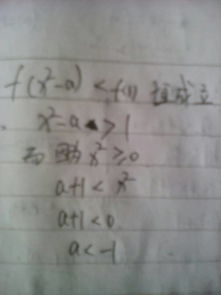 f(x²-a) < f(1) 恒成立
x²-a > 1
而 x² ≥ 0
a+1 < x²
a+1 < 0
a < -1